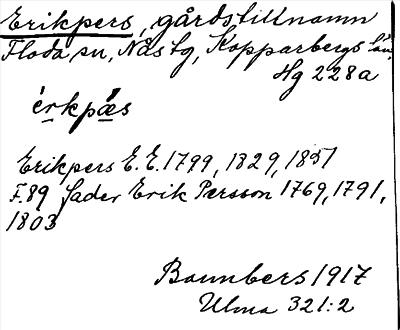 Erikpers, gårdstillnamn
Floda sn, Nås tg, Kopparbergs län.
Hg 228a
èrkpæs
Erikpers E.E. 1799, 1829, 1851
F.89 fader Erik Persson 1769, 1791,
1803
1917
Ulma 321:2